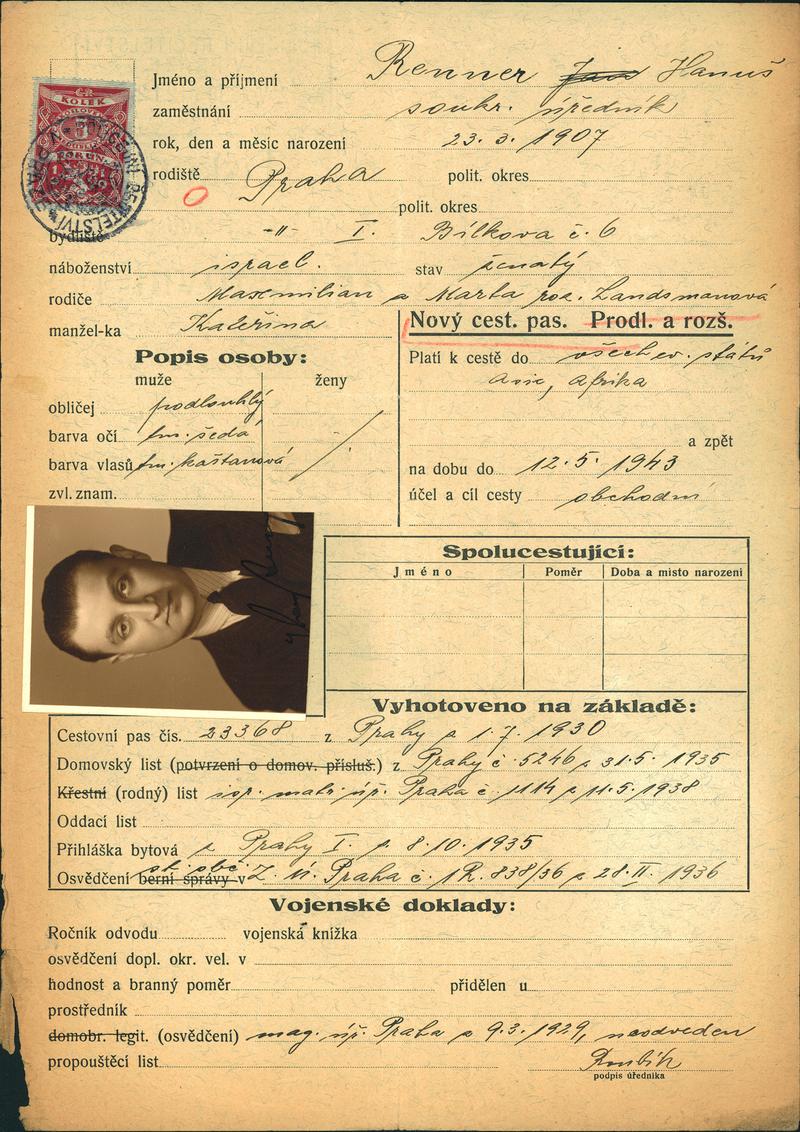 ČR
KOLEK
5
KORUN
Jméno a příjmení Renner Jan Hanuš
zaměstnání soukr. úředník
rok, den a měsíc narození 23. 3. 1907
rodiště Praha polit. okres
polit. okres
bydliště -"- I. Bílkova č. 6
náboženství israel. stav ženatý
rodiče Maxmilian a Marta roz. Landsmanová
manžel-ka Kateřina
Nový cest. pas. Prodl. a rozš.
Popis osoby:
muže ženy
Platí k cestě do všech ev. států
Asie, Afrika
obličej podlouhlý
barva očí tm. šedá
a zpět
barva vlasů tm. kaštanová
na dobu do 12. 5. 1943
zvl. znam.
účel a cíl cesty obchodní
Spolucestující:
Jméno Poměr Doba a misto narozeni
Vyhotoveno na základě:
Cestovní pas čís. 23368 z Prahy z 1. 7. 1930
Domovský list (potvrzení o domov. přísluš.) z Prahy č. 5246 z 31. 5. 1935
Křestní (rodný) list isr. matr. úř. Praha č. 1114 z 11. 5. 1938
Oddací list
Přihláška bytová z Prahy I. z 8. 10. 1935
Osvědčení berní správy v st. obč. Z. ú. Praha č. 1R. 838/36 z 28. II. 1936
Vojenské doklady:
Ročník odvodu vojenská knížka
osvědčení dopl. okr. vel. v
hodnost a branný poměr přidělen u
prostředník
domobr. legit. (osvědčení) mag. úř. Praha z 9. 3. 1929, neodveden
propouštěcí list
podpis úředníka